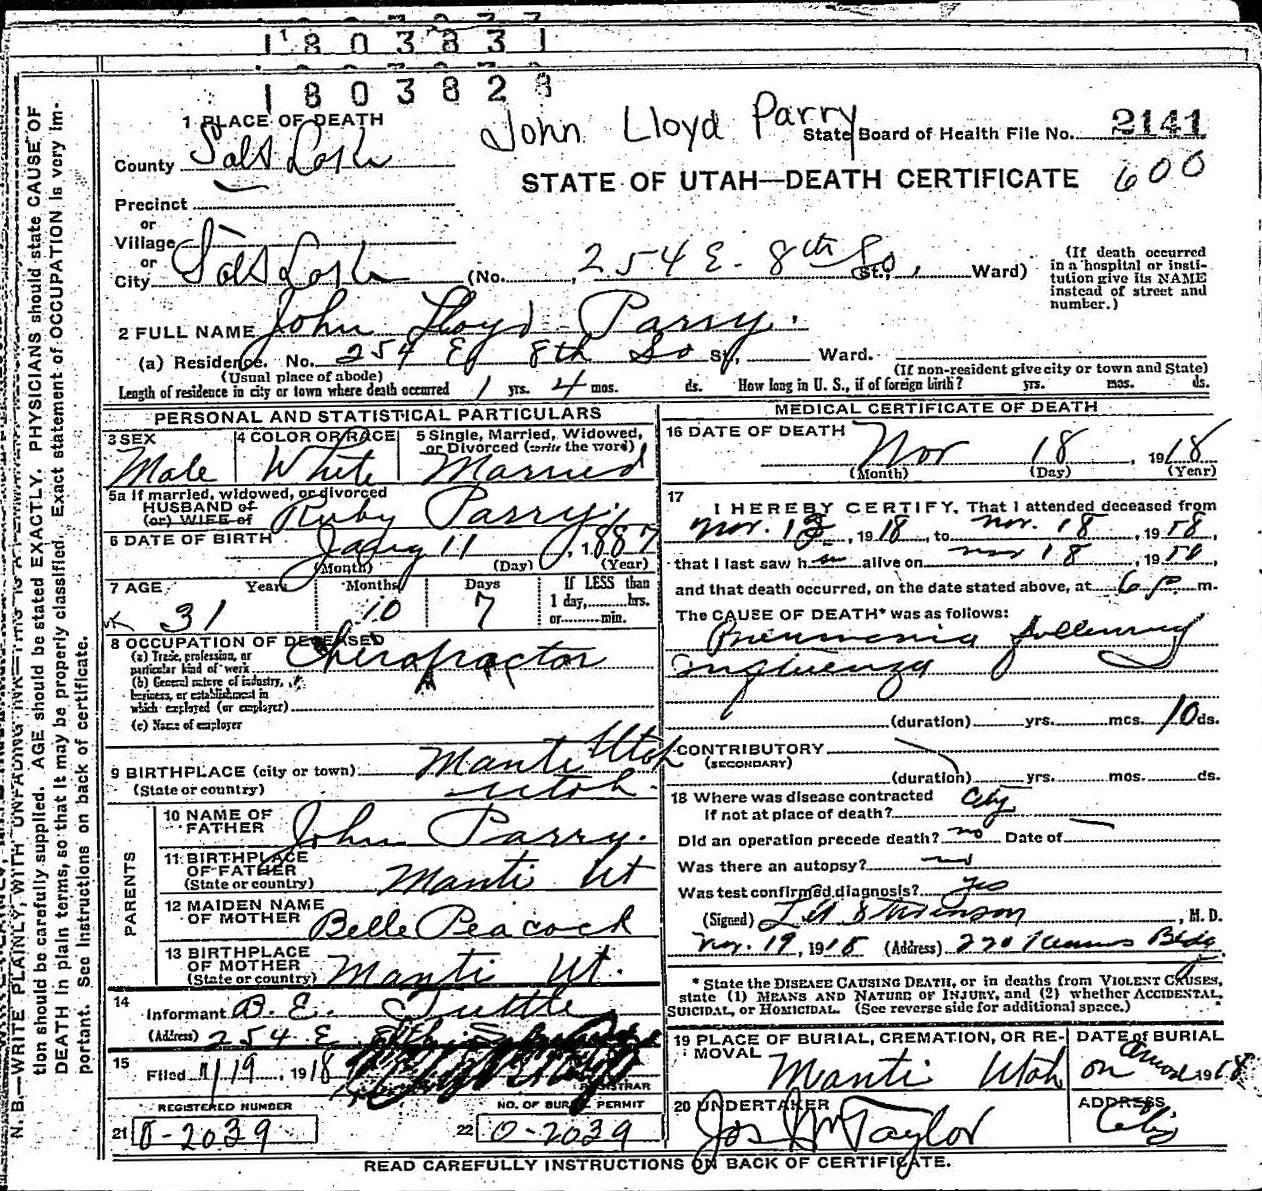 1803831
1803828
John Lloyd Parry
1 PLACE OF DEATH
State Board of Health File No. 2141
County Salt Lake
STATE OF UTAH—DEATH CERTIFICATE 600
Precinct
or
Village
or
City Salt Lake (No. 254 E. 8th So St., Ward)
(If death occurred in a hospital or insti-
tution give its NAME
instead of street and
number.)
2 FULL NAME John Lloyd Parry.
(a) Residence. No. 254 E 8th So St., Ward.
(Usual place of abode) (If non-resident give city or town and State)
Length of residence in city or town where death occurred 1 yrs. 4 mos. ds. How long in U. S., if of foreign birth? yrs. mos. ds.
PERSONAL AND STATISTICAL PARTICULARS
3 SEX Male
4 COLOR OR RACE White
5 Single, Married, Widowed,
or Divorced (write the word)
Married
5a If married, widowed, or divorced
HUSBAND of
(or) WIFE of Ruby Parry
6 DATE OF BIRTH Jany 11, 1887
(Month) (Day) (Year)
7 AGE Years Months Days If LESS than
1 day, hrs.
or min.
31 10 7
8 OCCUPATION OF DECEASED
(a) Trade, profession, or
particular kind of work Chiropractor
(b) General nature of industry,
business, or establishment in
which employed (or employer)
(c) Name of employer
9 BIRTHPLACE (city or town) Manti Utah
(State or country) Utah.
PARENTS
10 NAME OF
FATHER John Parry.
11 BIRTHPLACE
OF FATHER
(State or country) Manti Ut
12 MAIDEN NAME
OF MOTHER Belle Peacock
13 BIRTHPLACE
OF MOTHER
(State or country) Manti Ut.
14
Informant B. E. Tuttle
(Address) 254 E 8th So
15
Filed 11/19, 1918
REGISTRAR
REGISTERED NUMBER
21 O-2039
NO. OF BURIAL PERMIT
22 O-2039
MEDICAL CERTIFICATE OF DEATH
16 DATE OF DEATH Nov 18, 1918
(Month) (Day) (Year)
17
I HEREBY CERTIFY, That I attended deceased from
Nov. 13, 1918, to Nov. 18, 1918,
that I last saw him alive on Nov 18, 1918
and that death occurred, on the date stated above, at 6 p m.
The CAUSE OF DEATH* was as follows:
Pneumonia following
influenza
(duration) yrs. mos. 10 ds.
CONTRIBUTORY
(SECONDARY)
(duration) yrs. mos. ds.
18 Where was disease contracted
If not at place of death? City
Did an operation precede death? no Date of
Was there an autopsy? no
Was test confirmed diagnosis? yes
(Signed) , M. D.
Nov. 19, 1918 (Address) Bldg
* State the DISEASE CAUSING DEATH, or in deaths from VIOLENT CAUSES,
state (1) MEANS AND NATURE OF INJURY, and (2) whether ACCIDENTAL,
SUICIDAL, or HOMICIDAL. (See reverse side for additional space.)
19 PLACE OF BURIAL, CREMATION, OR RE-
MOVAL
Manti Utah
DATE of BURIAL
on 1918
20 UNDERTAKER
Jos Wm Taylor
ADDRESS
City
READ CAREFULLY INSTRUCTIONS ON BACK OF CERTIFICATE.
N. B.—WRITE PLAINLY, WITH UNFADING INK
tion should be carefully supplied. AGE should be stated EXACTLY. PHYSICIANS should state CAUSE OF
DEATH in plain terms, so that it may be properly classified. Exact statement of OCCUPATION is very im-
portant. See Instructions on back of certificate.